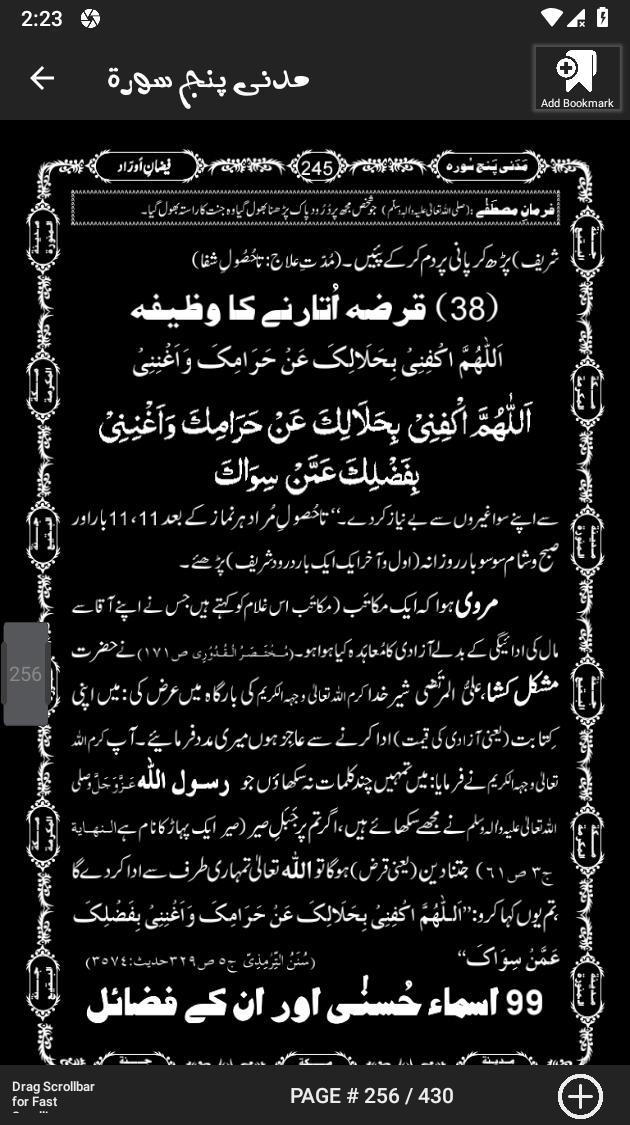 2:23
مدنی پنج سورۃ
Add Bookmark
مَدَنی پَنج سُورہ
245
فیضانِ اَوْرَاد
فرمانِ مصطَفٰے :(صلی اللہ تعالیٰ علیہ والہٖ وسلّم) جو شخص مجھ پر دُرُودِ پاک پڑھنا بھول گیا وہ جنت کا راستہ بھول گیا۔
شریف) پڑھ کر پانی پر دم کر کے پئیں۔ (مُدّتِ علاج: تاحُصُولِ شفا)
(38) قرضہ اُتارنے کا وظیفہ
اَللّٰھُمَّ اکْفِنِیْ بِحَلَالِکَ عَنْ حَرَامِکَ وَاَغْنِنِیْ
اَللّٰهُمَّ اكْفِنِيْ بِحَلَالِكَ عَنْ حَرَامِكَ وَاَغْنِنِيْ
بِفَضْلِكَ عَمَّنْ سِوَاكَ
سے اپنے سوا غیروں سے بے نیاز کردے۔‘‘ تاحُصولِ مُراد ہر نماز کے بعد 11،11 بار اور
صبح وشام سو سو بار روزانہ (اول و آخر ایک ایک بار درود شریف) پڑھئے۔
مروی ہوا کہ ایک مکاتَب (مکاتَب اس غلام کو کہتے ہیں جس نے اپنے آقا سے
مال کی ادائیگی کے بدلے آزادی کا مُعاہَدہ کیا ہوا ہو۔ (مُخْتَصَرُ الْقُدُوْرِی ص۱۷۱) نے حضرت
مشکل کشا، علیُّ المرتَضٰی شیرِ خدا کرم اللہ تعالیٰ وجہہ الکریم کی بارگاہ میں عرض کی: میں اپنی
کِتابت (یعنی آزادی کی قیمت) ادا کرنے سے عاجِز ہوں میری مدد فرمائیے۔ آپ کرم اللہ
تعالیٰ وجہہ الکریم نے فرمایا: میں تمہیں چند کلمات نہ سکھاؤں جو رسول اللہ عَزَّوَجَلَّ وصلی
اللہ تعالیٰ علیہ والہٖ وسلم نے مجھے سکھائے ہیں، اگر تم پر جَبَلِ صِیر (صِیر ایک پہاڑ کا نام ہے النہایۃ
ج۳ ص۶۱) جتنا دین (یعنی قرض) ہوگا تو اللہ تعالیٰ تمہاری طرف سے ادا کردے گا
،تم یوں کہا کرو:’’اَللّٰھُمَّ اکْفِنِیْ بِحَلَالِکَ عَنْ حَرَامِکَ وَاَغْنِنِیْ بِفَضْلِکَ
عَمَّنْ سِوَاکَ‘‘ (سُنَنُ التِّرْمِذِیّ ج۵ ص۳۲۹ حدیث:۳۵۷۴)
99 اسماء حُسنٰی اور ان کے فضائل
256
Drag Scrollbar
for Fast
PAGE # 256 / 430